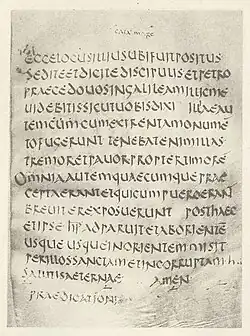 ECCE LOCUS ILLIUS UBI FUIT POSITUS
SED ITE ET DICITE DISCIPULIS ET PETRO
PRAECEDO UOS IN GALILEAM ILLIC ME
UIDEBITIS SICUT UOBIS DIXI ILLAE AU
TEM CUM CUM EXIRENT A MONUME
TO FUGERUNT TENEBAT ENIM ILLAS
TREMOR ET PAUOR PROPTER TIMORE
OMNIA AUTEM QUAECUMQUE PRAE
CEPTA ERANT ET QUI CUM PUERO ERAN
BREUITER EXPOSUERUNT POST HAEC
ET IPSE ADPARUIT ET AB ORIENTE
USQUE USQUE IN ORIENTEM MISIT
PER ILLOS SANCTAM ET INCORRUPTAM
SALUTIS AETERNAE AMEN
PRAEDICATIONI